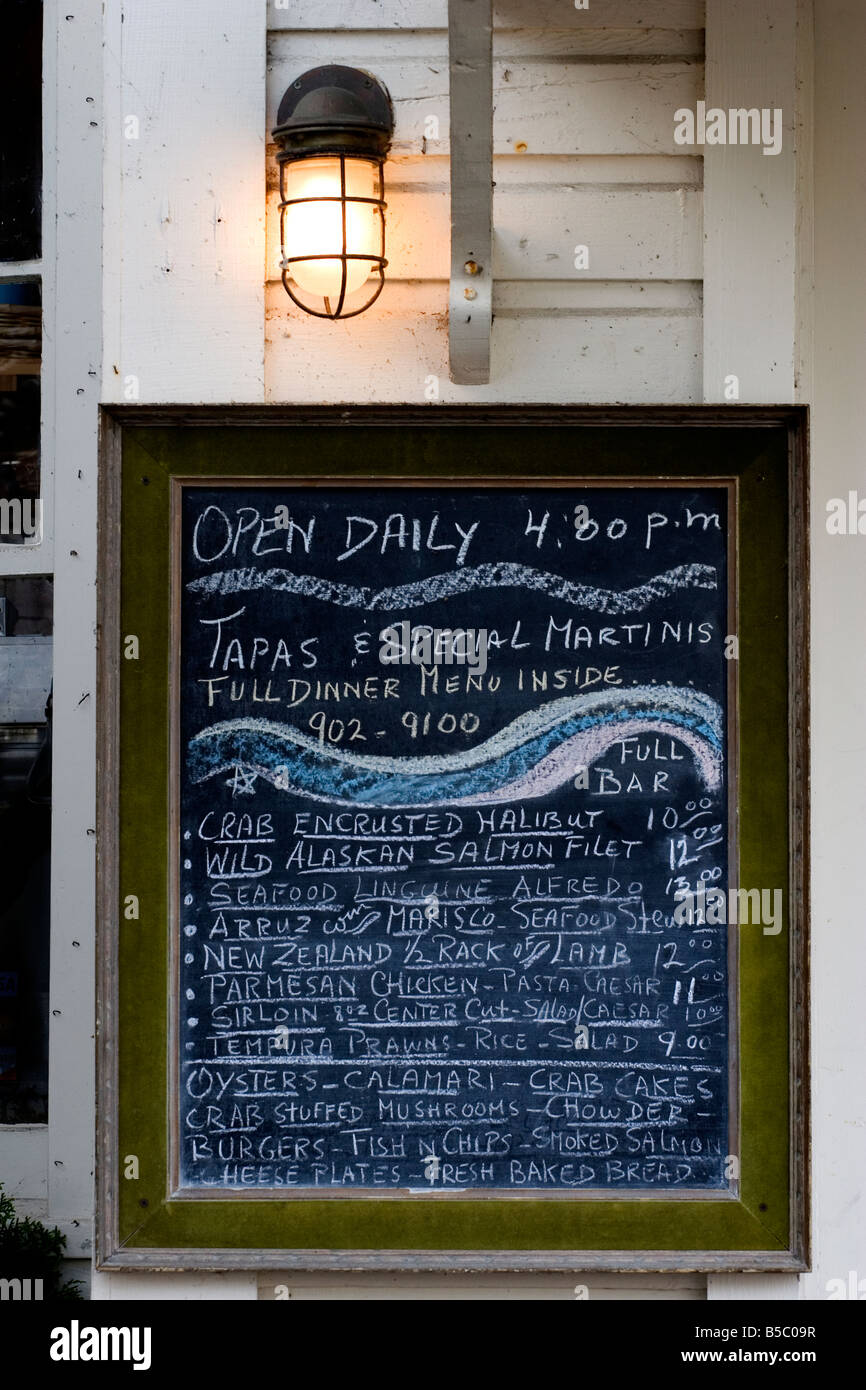 OPEN DAILY 4:00 p.m
TAPAS & SPECIAL MARTINIS
FULL DINNER MENU INSIDE.....
902-9100
FULL
BAR
CRAB ENCRUSTED HALIBUT 10.00
WILD ALASKAN SALMON FILET 12.00
SEAFOOD LINGUINE ALFREDO 13.00
ARRUZ com MARISCO-SEAFOOD Stew 12.00
NEW ZEALAND 1/2 RACK OF LAMB 12.00
PARMESAN CHICKEN-PASTA CAESAR 11.00
SIRLOIN 8oz CENTER CUT-SALAD/CAESAR 10.00
TEMPURA PRAWNS-RICE-SALAD 9.00
OYSTERS-CALAMARI-CRAB CAKES
CRAB STUFFED MUSHROOMS-CHOWDER-
BURGERS-FISH N CHIPS-SMOKED SALMON
CHEESE PLATES-FRESH BAKED BREAD
alamy
Image ID: B5C09R
www.alamy.com